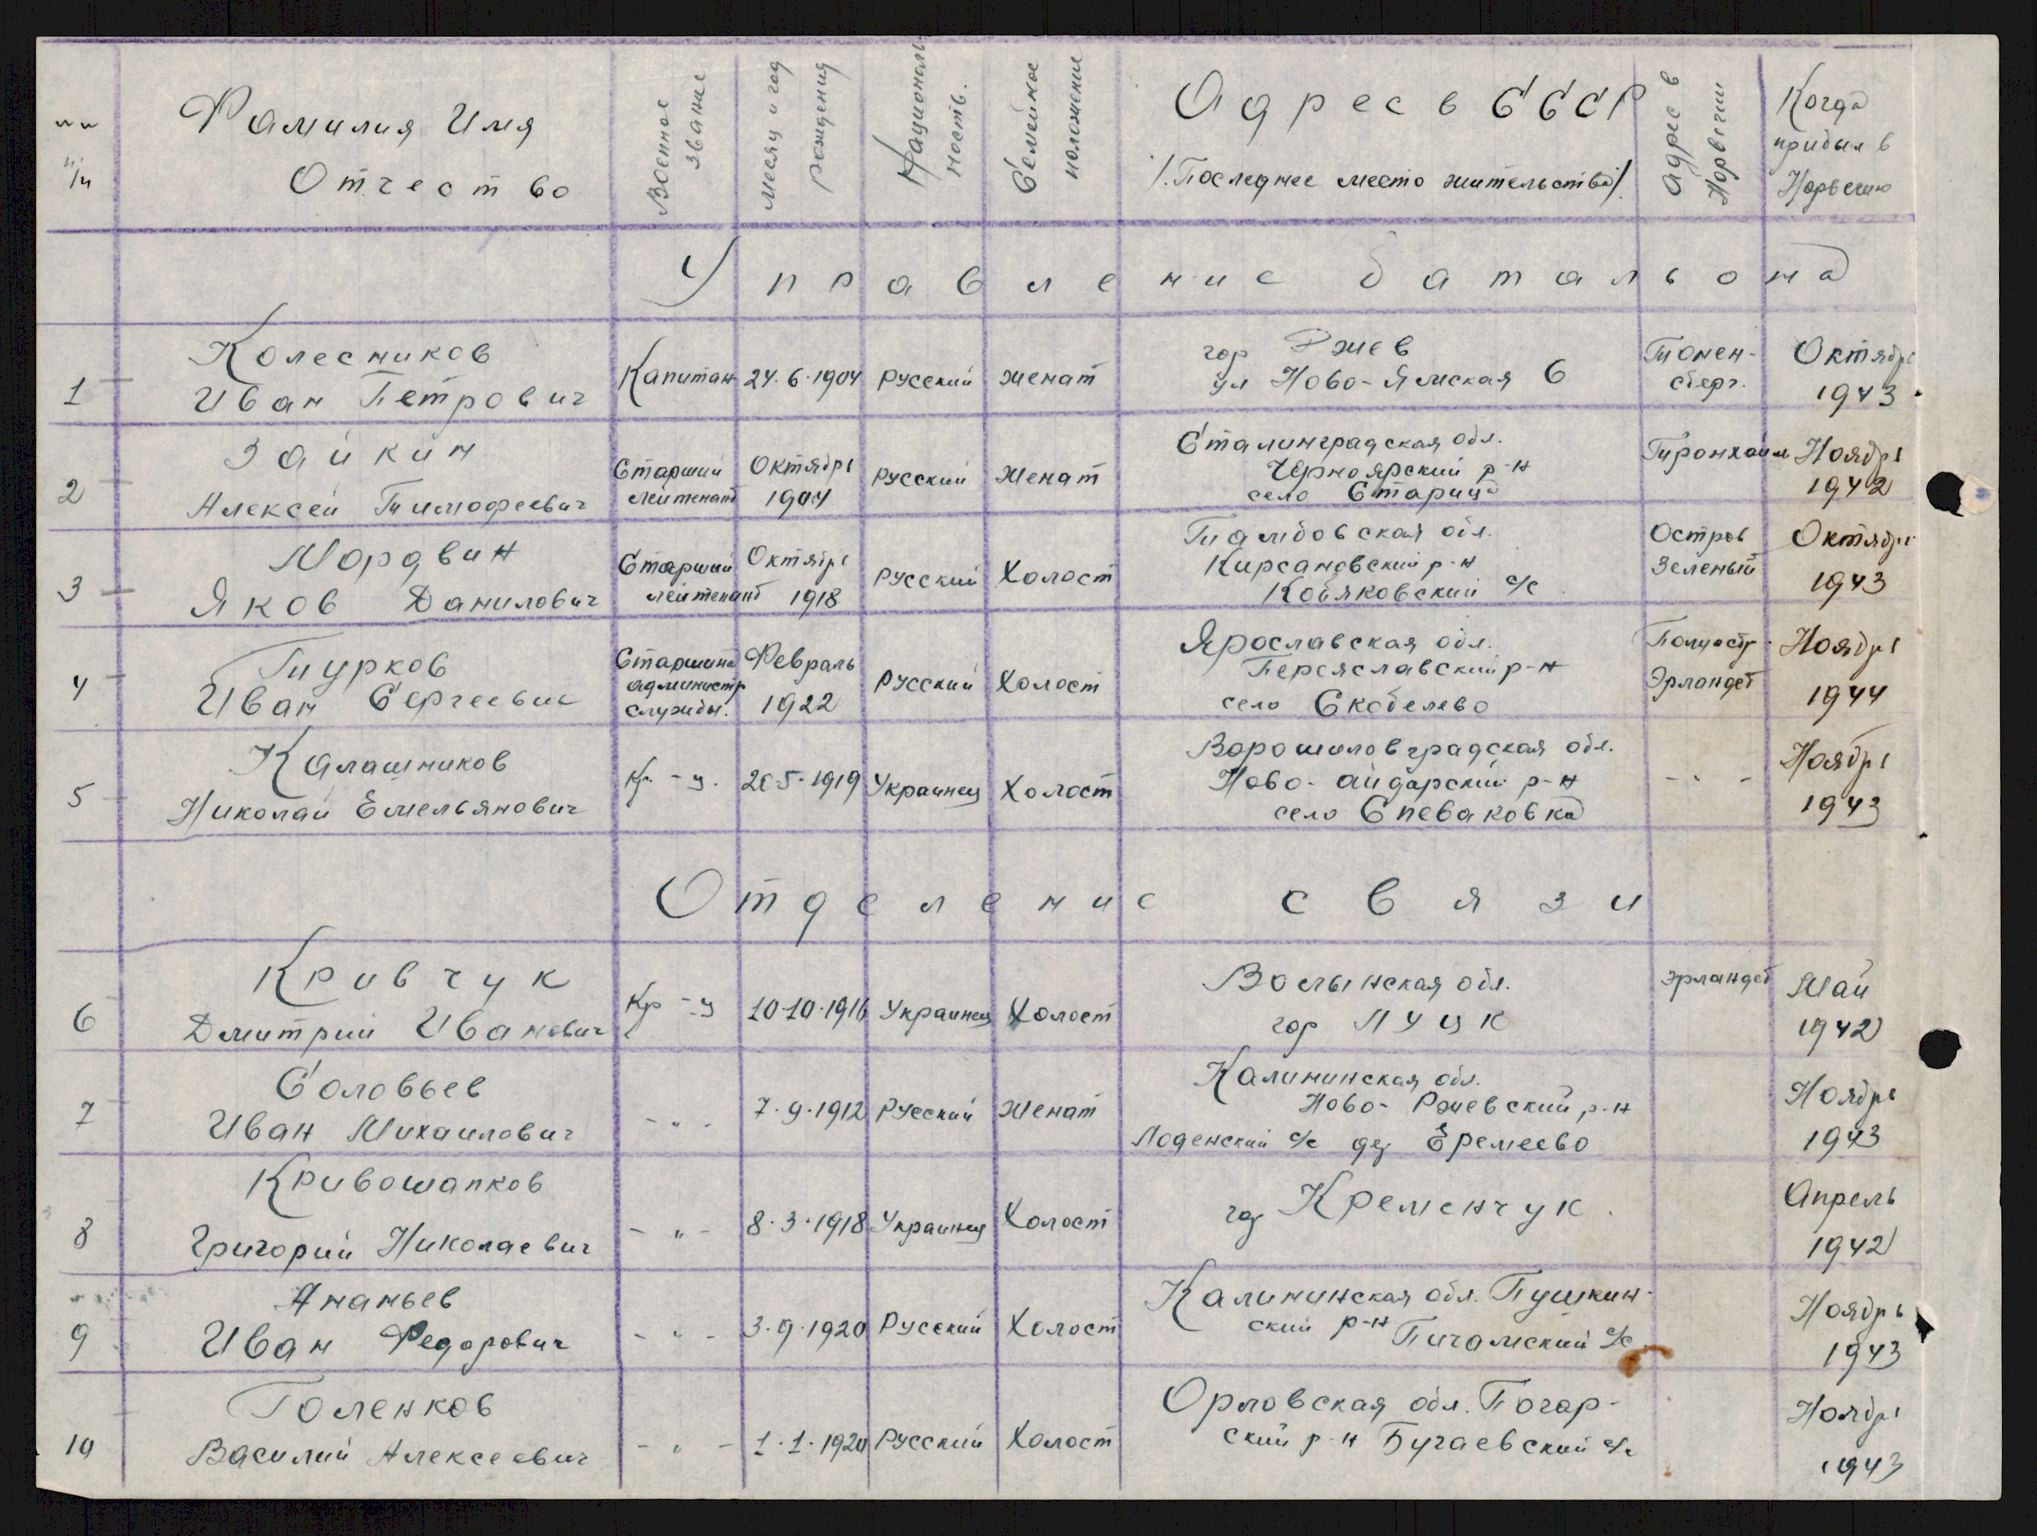 №№ п/п
Фамилия Имя Отчество
Военное звание
Месяц и год рождения
Национальность.
Семейное положение
Адрес в СССР
/.Последнее место жительства/.
Адрес в Норвегии
Когда прибыл в Норвегию
Управление батальона
1 Колесников Иван Петрович Капитан 24.6.1904 Русский женат гор Ржев ул Ново-Ямская 6 Тонен-сберг. Октябрь 1943
2 Зайкин Алексей Тимофеевич Старший лейтенант Октябрь 1904 Русский женат Сталинградская обл. Черноярский р-н село Старица Тронхайм Ноябрь 1942
3 Мордвин Яков Данилович Старший лейтенант Октябрь 1918 Русский Холост Тамбовская обл. Кирсановский р-н Кобяковский с/с Остров Зеленый Октябрь 1943
4 Турков Иван Сергеевич Старшина администр службы. Февраль 1922 Русский Холост Ярославская обл. Переяславский р-н село Скобелево Полуостр. Эрландет Ноябрь 1944
5 Калашников Николай Емельянович Кр-ц. 20.5.1919 Украинец Холост Ворошиловградская обл. Ново-айдарский р-н село Спеваковка -"- Ноябрь 1943
Отделение связи
6 Кривчук Дмитрий Иванович Кр-ц 10.10.1916 Украинец Холост Волынская обл. гор Луцк Эрландет Май 1942
7 Соловьев Иван Михаилович -"- 7.9.1912 Русский женат Калининская обл. Ново-Ржевский р-н Лоденский с/с дер Еремеево Ноябрь 1943
8 Кривошапков Григорий Николаевич -"- 8.3.1918 Украинец Холост гор Кременчук. Апрель 1942
9 Ананьев Иван Федорович -"- 3.9.1920 Русский Холост Калининская обл. Пушкин-ский р-н с/с Ноябрь 1943
10 Голенков Василий Алексеевич -"- 1.1.1920 Русский Холост Орловская обл. Погар-ский р-н Бугаевский с/с Ноябрь 1943